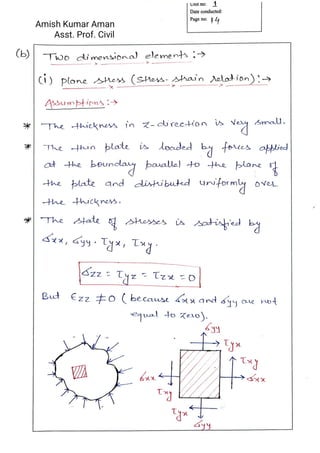 Unit no: 1
Date conducted:
Page no: 14
Amish Kumar Aman
Asst. Prof. Civil
(b) Two dimensional elements :→
(i) Plane stress (stress-strain relation) :→
Assumptions :→
* The thickness in z-direction is very small.
* The thin plate is loaded by forces applied
at the boundary parallel to the plane of
the plate and distributed uniformly over
the thickness.
* The state of stresses is satisfied by
σxx, σyy, τyx, τxy.
σzz = τyz = τzx = 0
But ϵzz ≠ 0 (because σxx and σyy are not
equal to zero).
σyy
τyx
τxy
σxx
σxx
τxy
τyx
σyy